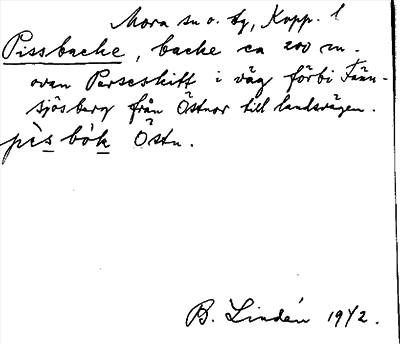 Mora sn o. tg, Kopp. l
Pissbacke, backe ca 200 m.
ovan Perseskift i väg förbi Fänn-
sjösberg från Östnor till landsvägen.
pìs bók Östn.
B. Lindén 1942.